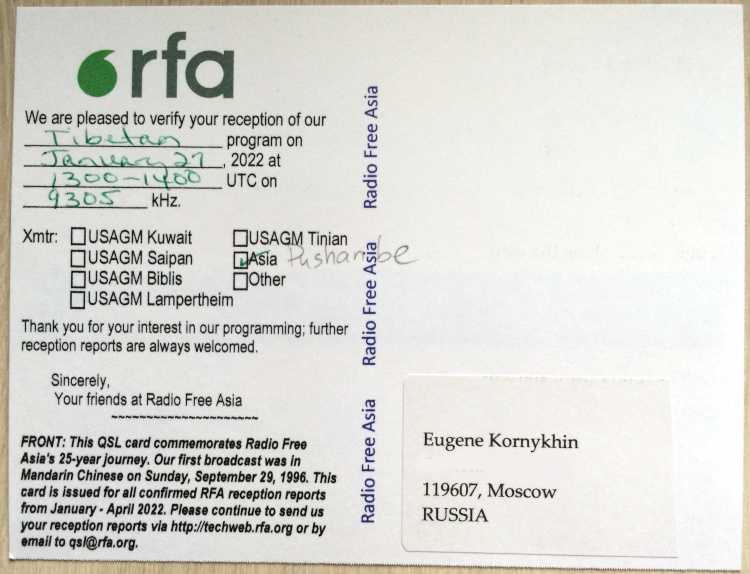 rfa
We are pleased to verify your reception of our
Tibetan program on
January 27, 2022 at
1300-1400 UTC on
9305 kHz.
Xmtr: USAGM Kuwait USAGM Tinian
USAGM Saipan Asia Dushambe
USAGM Biblis Other
USAGM Lampertheim
Thank you for your interest in our programming; further
reception reports are always welcomed.
Sincerely,
Your friends at Radio Free Asia
~~~~~~~~~~~~~~~~~~~~~
FRONT: This QSL card commemorates Radio Free
Asia's 25-year journey. Our first broadcast was in
Mandarin Chinese on Sunday, September 29, 1996. This
card is issued for all confirmed RFA reception reports
from January - April 2022. Please continue to send us
your reception reports via http://techweb.rfa.org or by
email to qsl@rfa.org.
Radio Free Asia
Radio Free Asia
Radio Free Asia
Eugene Kornykhin
119607, Moscow
RUSSIA